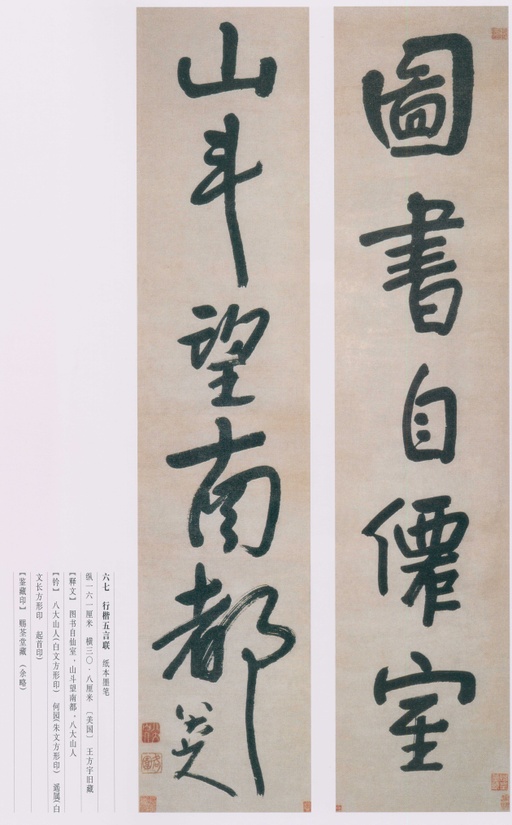 圖書自僊室
山斗望南都
八大山人
六七 行楷五言联 纸本墨笔
纵一六一厘米 横三〇·八厘米 〔美国〕 王方宇旧藏
【释文】 图书自仙室,山斗望南都,八大山人
【钤】 八大山人(白文方形印) 何园(朱文方形印) 遥属(白
文长方形印 起首印)
【鉴藏印】 赐茶堂藏 (余略)